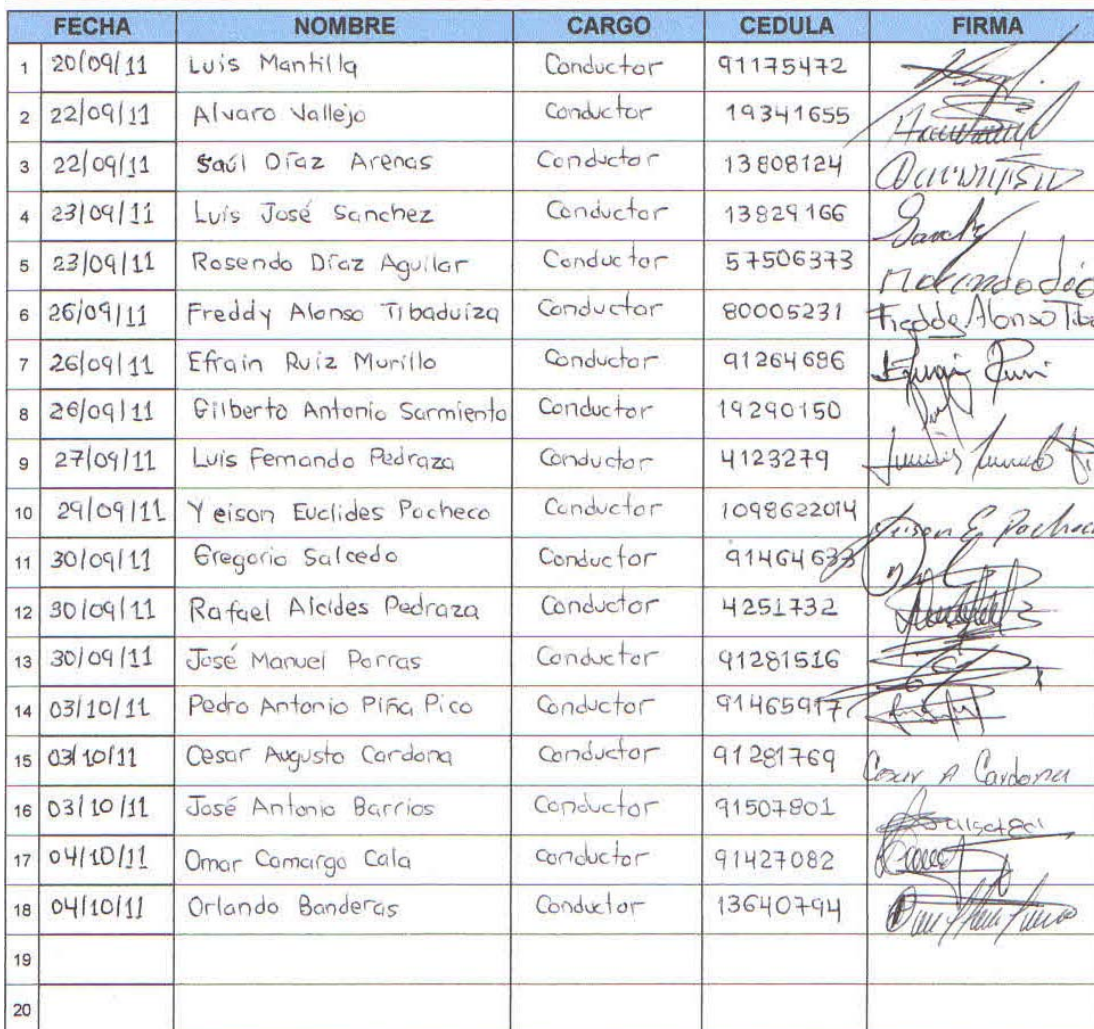 FECHA NOMBRE CARGO CEDULA FIRMA
1 20/09/11 Luis Mantilla Conductor 91175472
2 22/09/11 Alvaro Vallejo Conductor 19341655
3 22/09/11 Saúl Díaz Arenas Conductor 13808124
4 23/09/11 Luis José Sanchez Conductor 13829166
5 23/09/11 Rosendo Díaz Aguilar Conductor 57506373
6 26/09/11 Freddy Alonso Tibaduiza Conductor 80005231 Freddy Alonso
7 26/09/11 Efrain Ruiz Murillo Conductor 91264686
8 26/09/11 Gilberto Antonio Sarmiento Conductor 19290150
9 27/09/11 Luis Fernando Pedraza Conductor 4123279
10 29/09/11 Yeison Euclides Pacheco Conductor 1098622014 Yeison E Pacheco
11 30/09/11 Gregorio Salcedo Conductor 91464633
12 30/09/11 Rafael Alcides Pedraza Conductor 4251732
13 30/09/11 José Manuel Porras Conductor 91281516
14 03/10/11 Pedro Antonio Piña Pico Conductor 91465917
15 03/10/11 Cesar Augusto Cardona Conductor 91281769 Cesar A Cardona
16 03/10/11 José Antonio Barrios Conductor 91507801
17 04/10/11 Omar Camargo Cala Conductor 91427082
18 04/10/11 Orlando Banderas Conductor 13640794
19
20